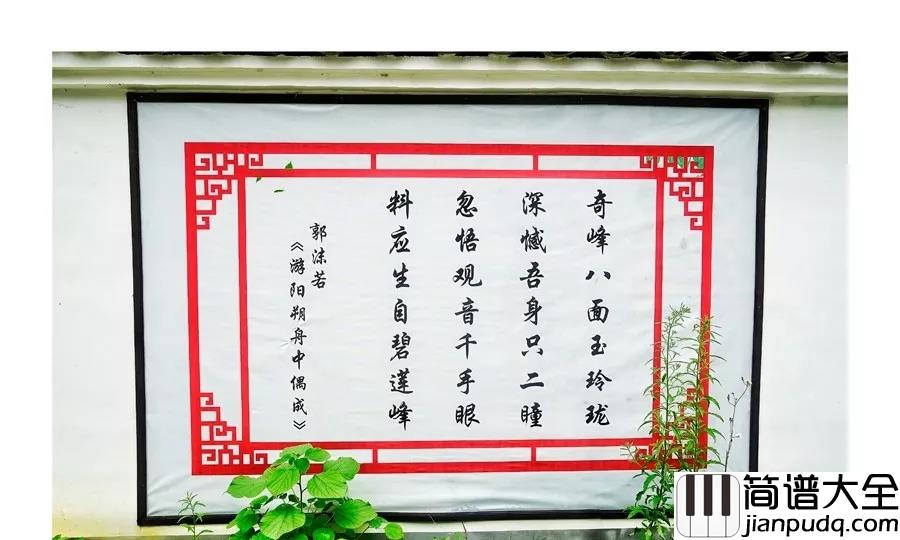 奇峰八面玉玲珑
深憾吾身只二瞳
忽悟观音千手眼
料应生自碧莲峰
郭沫若
《游阳朔舟中偶成》
简谱大全
jianpudq.com